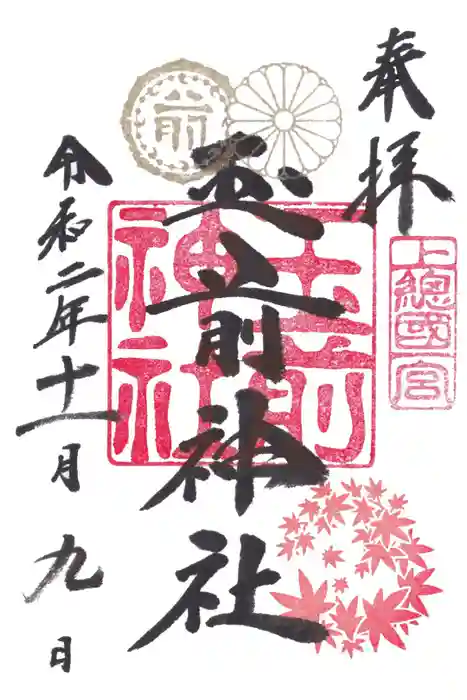 奉拝
上總國一宮
玉前神社
玉前
神社
令和二年十一月九日